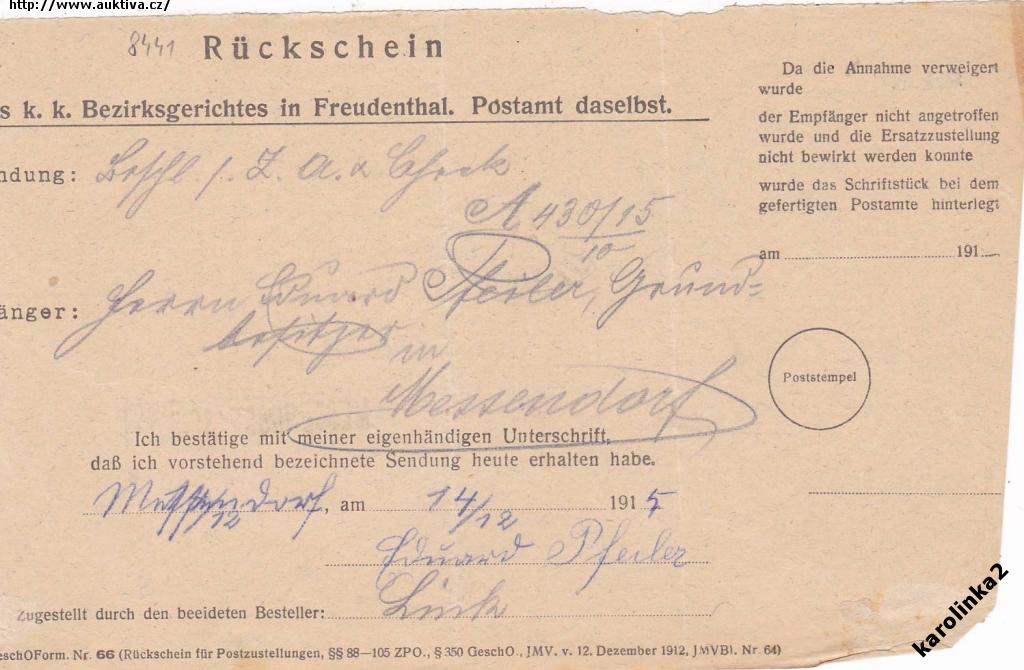 http://www.auktiva.cz/
8441
Rückschein
s k. k. Bezirksgerichtes in Freudenthal. Postamt daselbst.
ndung: Beschl. Z. A.
A 430/15
10
änger: Herrn Eduard Pfeiler, Grund-
besitzer
in
Messendorf
Ich bestätige mit meiner eigenhändigen Unterschrift,
daß ich vorstehend bezeichnete Sendung heute erhalten habe.
Messendorf, am 14/12 1915
Eduard Pfeiler
Zugestellt durch den beeideten Besteller: Link
eschOForm. Nr. 66 (Rückschein für Postzustellungen, §§ 88—105 ZPO., § 350 GeschO., JMV. v. 12. Dezember 1912, JMVBl. Nr. 64)
Da die Annahme verweigert
wurde
der Empfänger nicht angetroffen
wurde und die Ersatzzustellung
nicht bewirkt werden konnte
wurde das Schriftstück bei dem
gefertigten Postamte hinterlegt
am 191
Poststempel
karolinka2